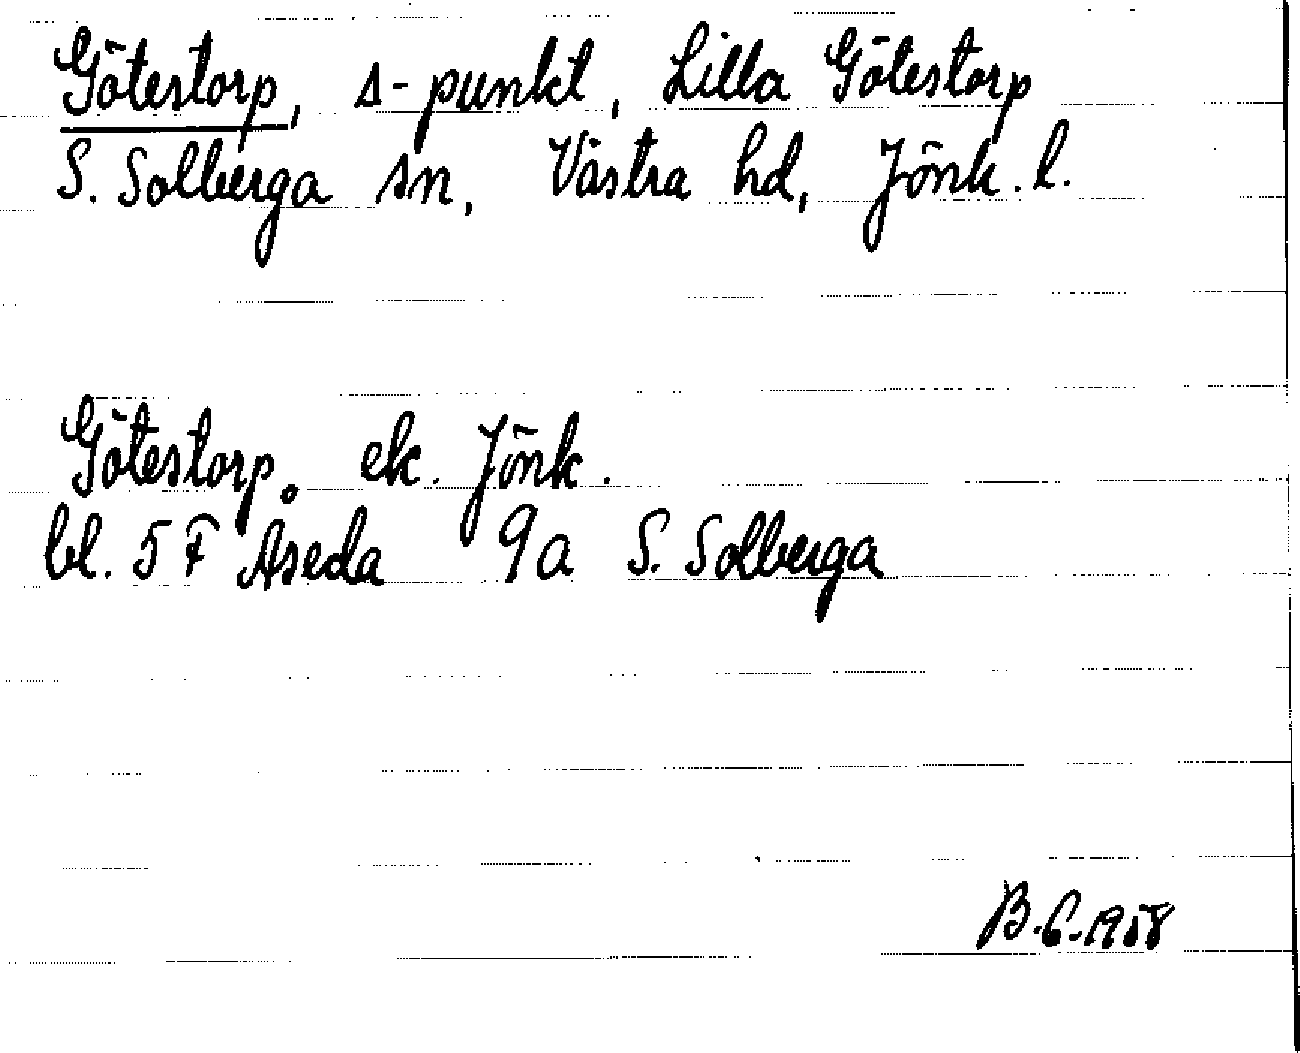 Götestorp, s-punkt, Lilla Götestorp
S. Solberga sn, Västra hd, Jönk. l.
Götestorp. ek. Jönk.
bl. 5 F Åseda 9a S. Solberga
B.6.1958